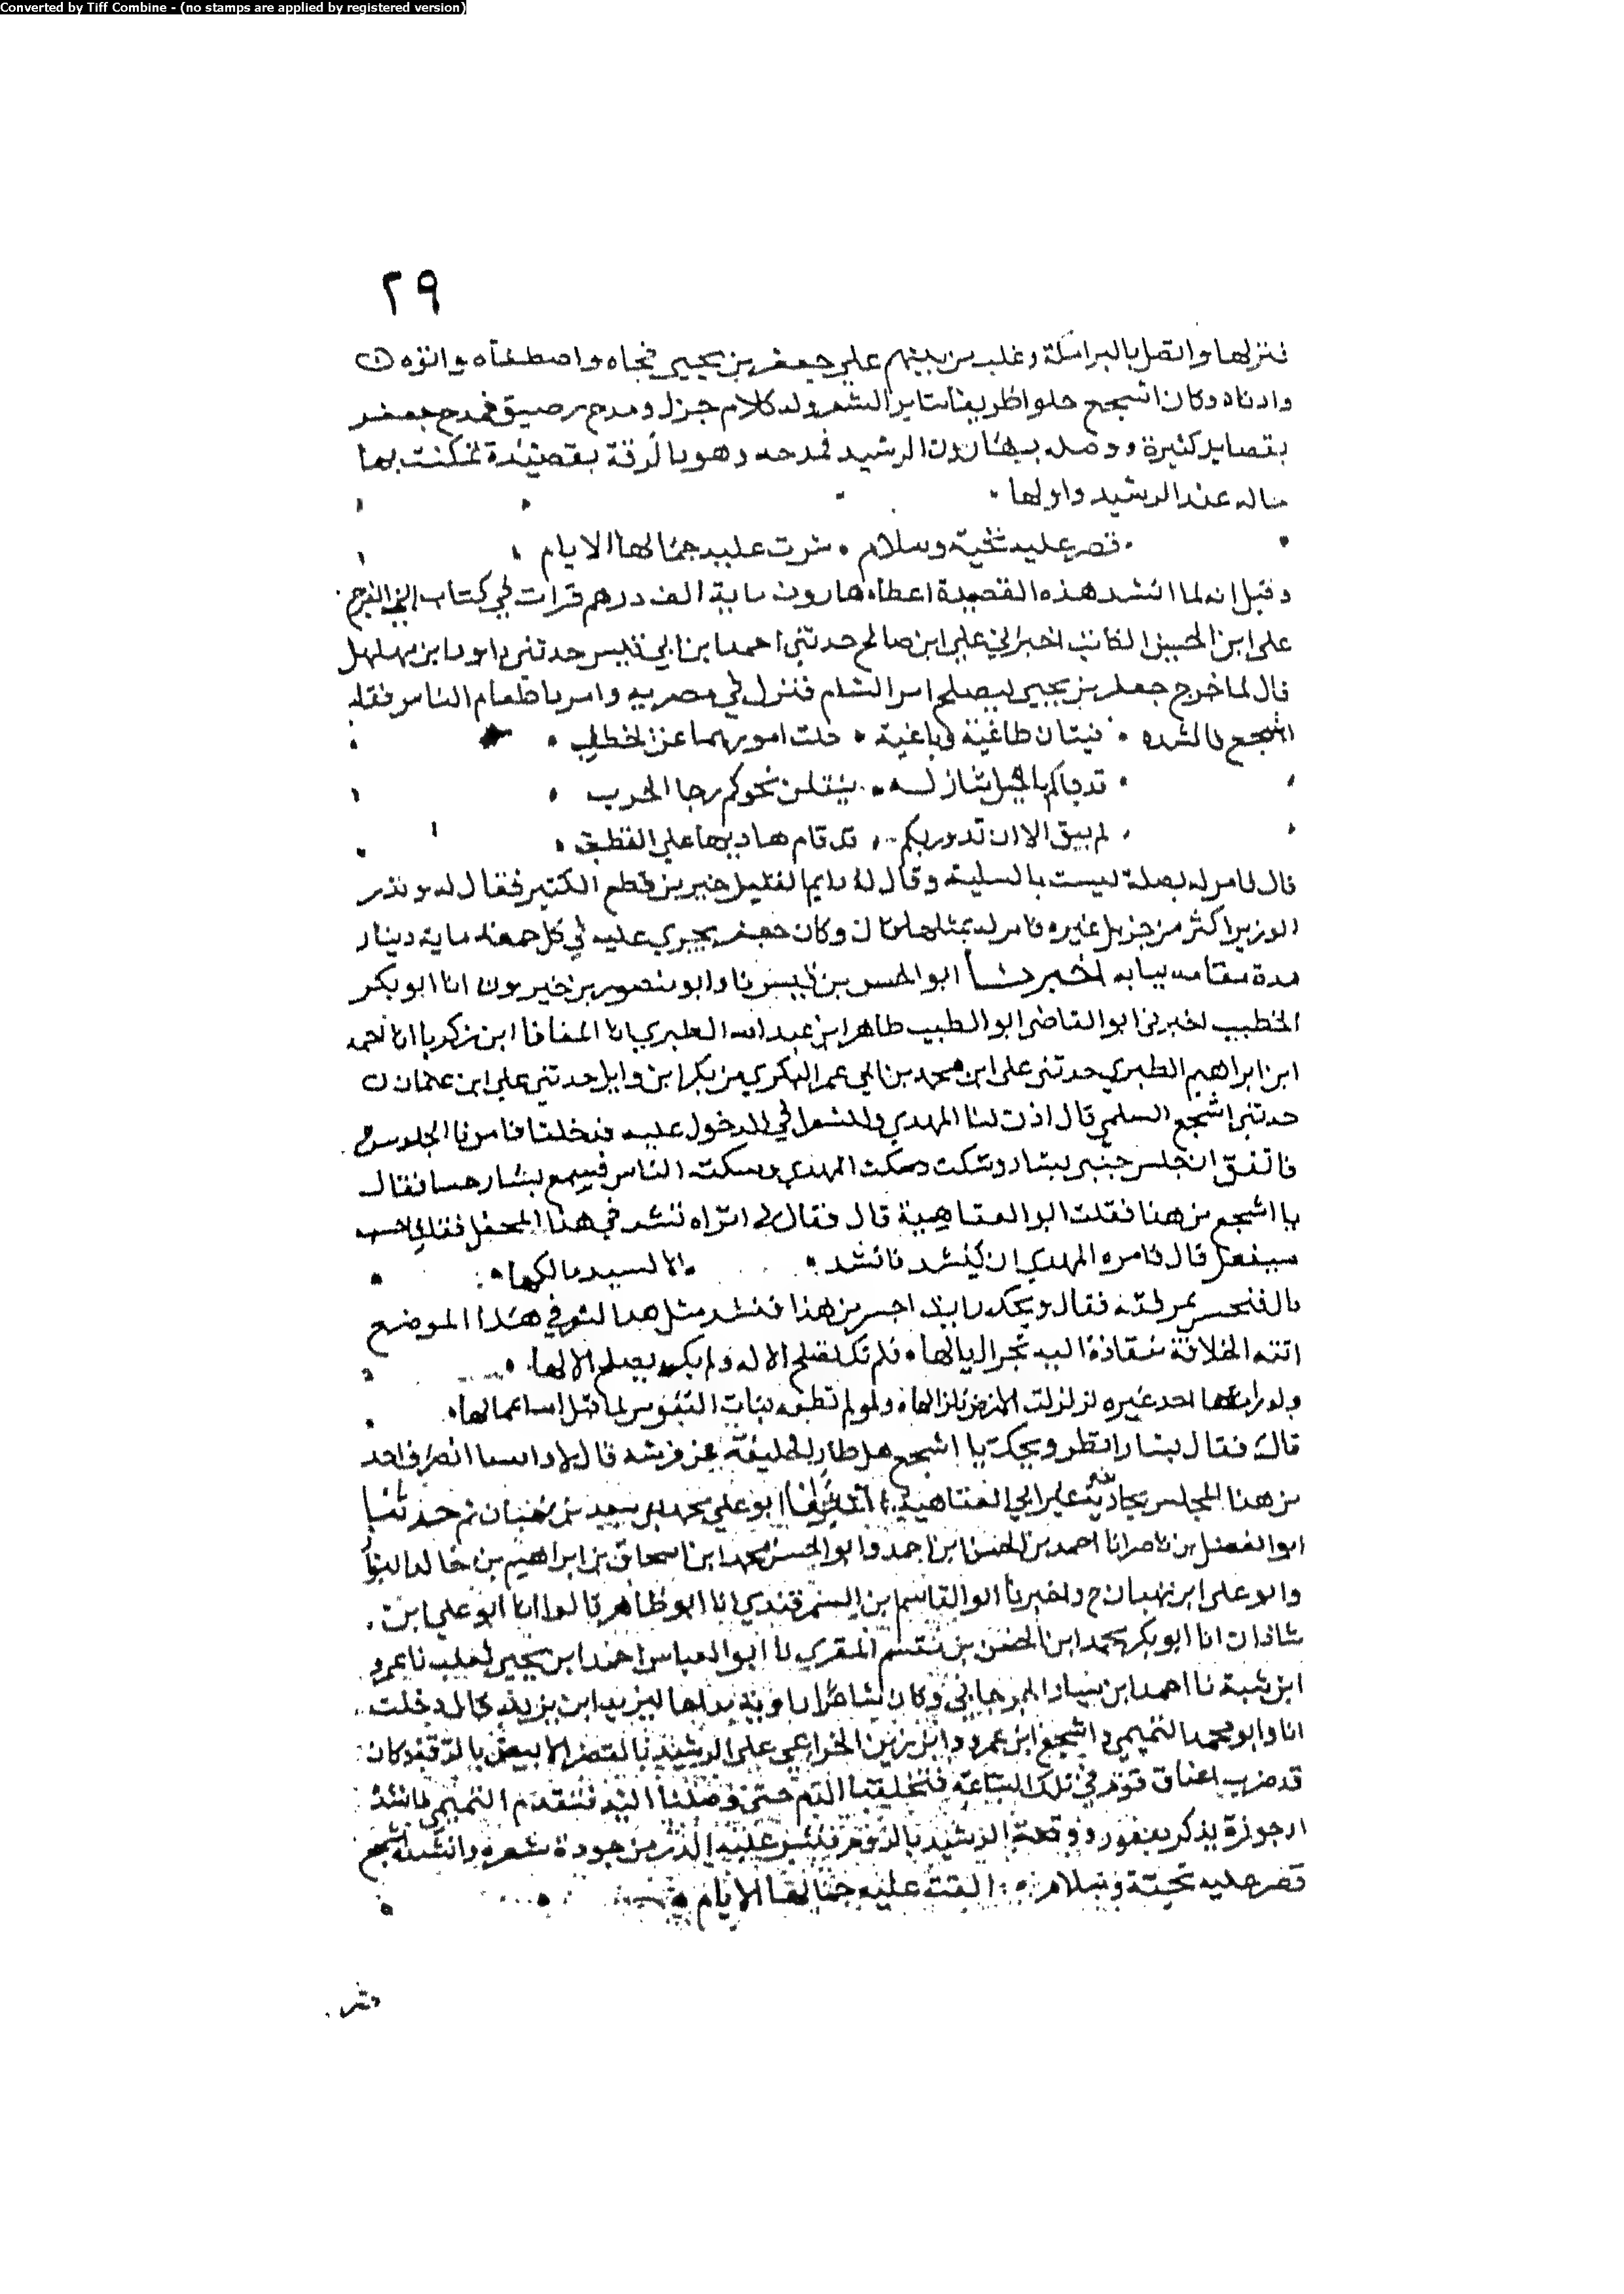 Converted by Tiff Combine - (no stamps are applied by registered version)
٢٩
فنزلها واتصل بالبرامكة وغلب من بينهم على جعفر بن يحيى فحباه واصطفاه واثره
وادناه وكان اشجع حلوا ظريفا سايرا لشعر وله كلام جزل ومدح رصيق فمدح جعفر
بقصايد كثيرة ووصله بهارون الرشيد فمدحه وهو بالرقة بقصيدة تمكنت بها
حاله عند الرشيد واولها
قصر عليه تحية وسلام نثرت عليه جمالها الايام
وقيل انه لما انشد هذه القصيدة اعطاه هارون ماية الف درهم قرات في كتاب ابي الفرج
على ابن الحسين الكاتب اخبرني علي ابن صالح حدثني احمد ابن ابي حدثني داود ابن مهلهل
قال لما خرج جعفر بن يحيى ليصلح امر الشام فنزل في مضربه وامر باطعام الناس فقام
اشجع فانشده فيتان طاغية وباغية جلت امورهما عن الخطب
قد جاكم بالخيل شازبه ينقلن نحوكم رحا الحرب
لم يبق الا ان تدور بكم قد قام هاديها على القطب
قال فامر له بصلة ليست بالسنية وقال له دايم القليل خير من قطع الكثير فقال له ونذر
الوزير اكثر من جزيل غيره فامر له بمثلها قال وكان جعفر يجري عليه في كل جمعة ماية دينار
مدة مقامه ببابه اخبرنا ابو الحسن بن قبيس نا وابو منصور بن خيرون انا ابو بكر
الخطيب اخبرني ابو القاضي ابو الطيب طاهر ابن عبد الله الطبري انا المعافا ابن زكريا انا احمد
ابن ابراهيم الطبري حدثني على ابن محمد بن ابي عمر البكري من بكر ابن وايل حدثني علي ابن عثمان
حدثني اشجع السلمي قال اذن لنا المهدي وللشعرا في الدخول عليه فدخلنا فامرنا بالجلوس
فاتفق ان جلس جنبي بشار وسكت المهدي وسكت الناس فسمع بشار حسا فقال
يا اشجع من هذا فقلت ابو العتاهية قال فقال لي اتراه ينشد في هذا المحفل فقلت احسب
سيفعل قال فامره المهدي ان ينشد فانشد الا لسيد مالكها
قال فنخس بمرفقه فقال ويحك رايت اجسر من هذا فنشد مثل هذا الشعر في هذا الموضع
اتته الخلافة منقادة اليه تجر اليالها فلم تك تصلح الا له ولم يك يصلح الا لها
ولو رامها احد غيره لزلزلت الارض زلزالها ولو لم تطعه بنات النفوس لما قبل اعمالها
قال فقال بشار انظر ويحك يا اشجع هل طار الخليفة عن فرشه قال لا والله ما انصرف احد
من هذا المجلس بجايزة غير ابي العتاهية ابو علي محمد بن سعيد بن نبهان ثم حدثنا
ابو الفضل بن ناصر انا احمد بن الحسن ابن احمد وابو الحسن محمد ابن اسحاق بن ابراهيم بن
وابو على ابن نبهان ح واخبرنا ابو القاسم ابن السمرقندي انا ابو طاهر قالوا انا ابو علي ابن
شاذان انا ابو بكر محمد ابن الحسن بن مقسم المقري نا ابو العباس احمد ابن يحيى ثعلب نا عمر
ابن شبة نا احمد ابن سيار الجرجاني وكان شاعرا راوية مداحا ليزيد ابن يزيد قال دخلت
انا وابو محمد التميمي واشجع ابن عمرو وابن رزين الخزاعي على الرشيد بالقصر الابيض بالرقة وكان
قد ضرب اعناق قوم في تلك الساعة فتخللنا الدم حتى وصلنا اليه فتقدم التميمي فانشد
ارجوزة يذكر نقفور ووقعة الرشيد بالروم فنثر عليه الدر من جودة شعره وانشده اشجع
قصر عليه تحية وسلام القت عليه جمالها الايام